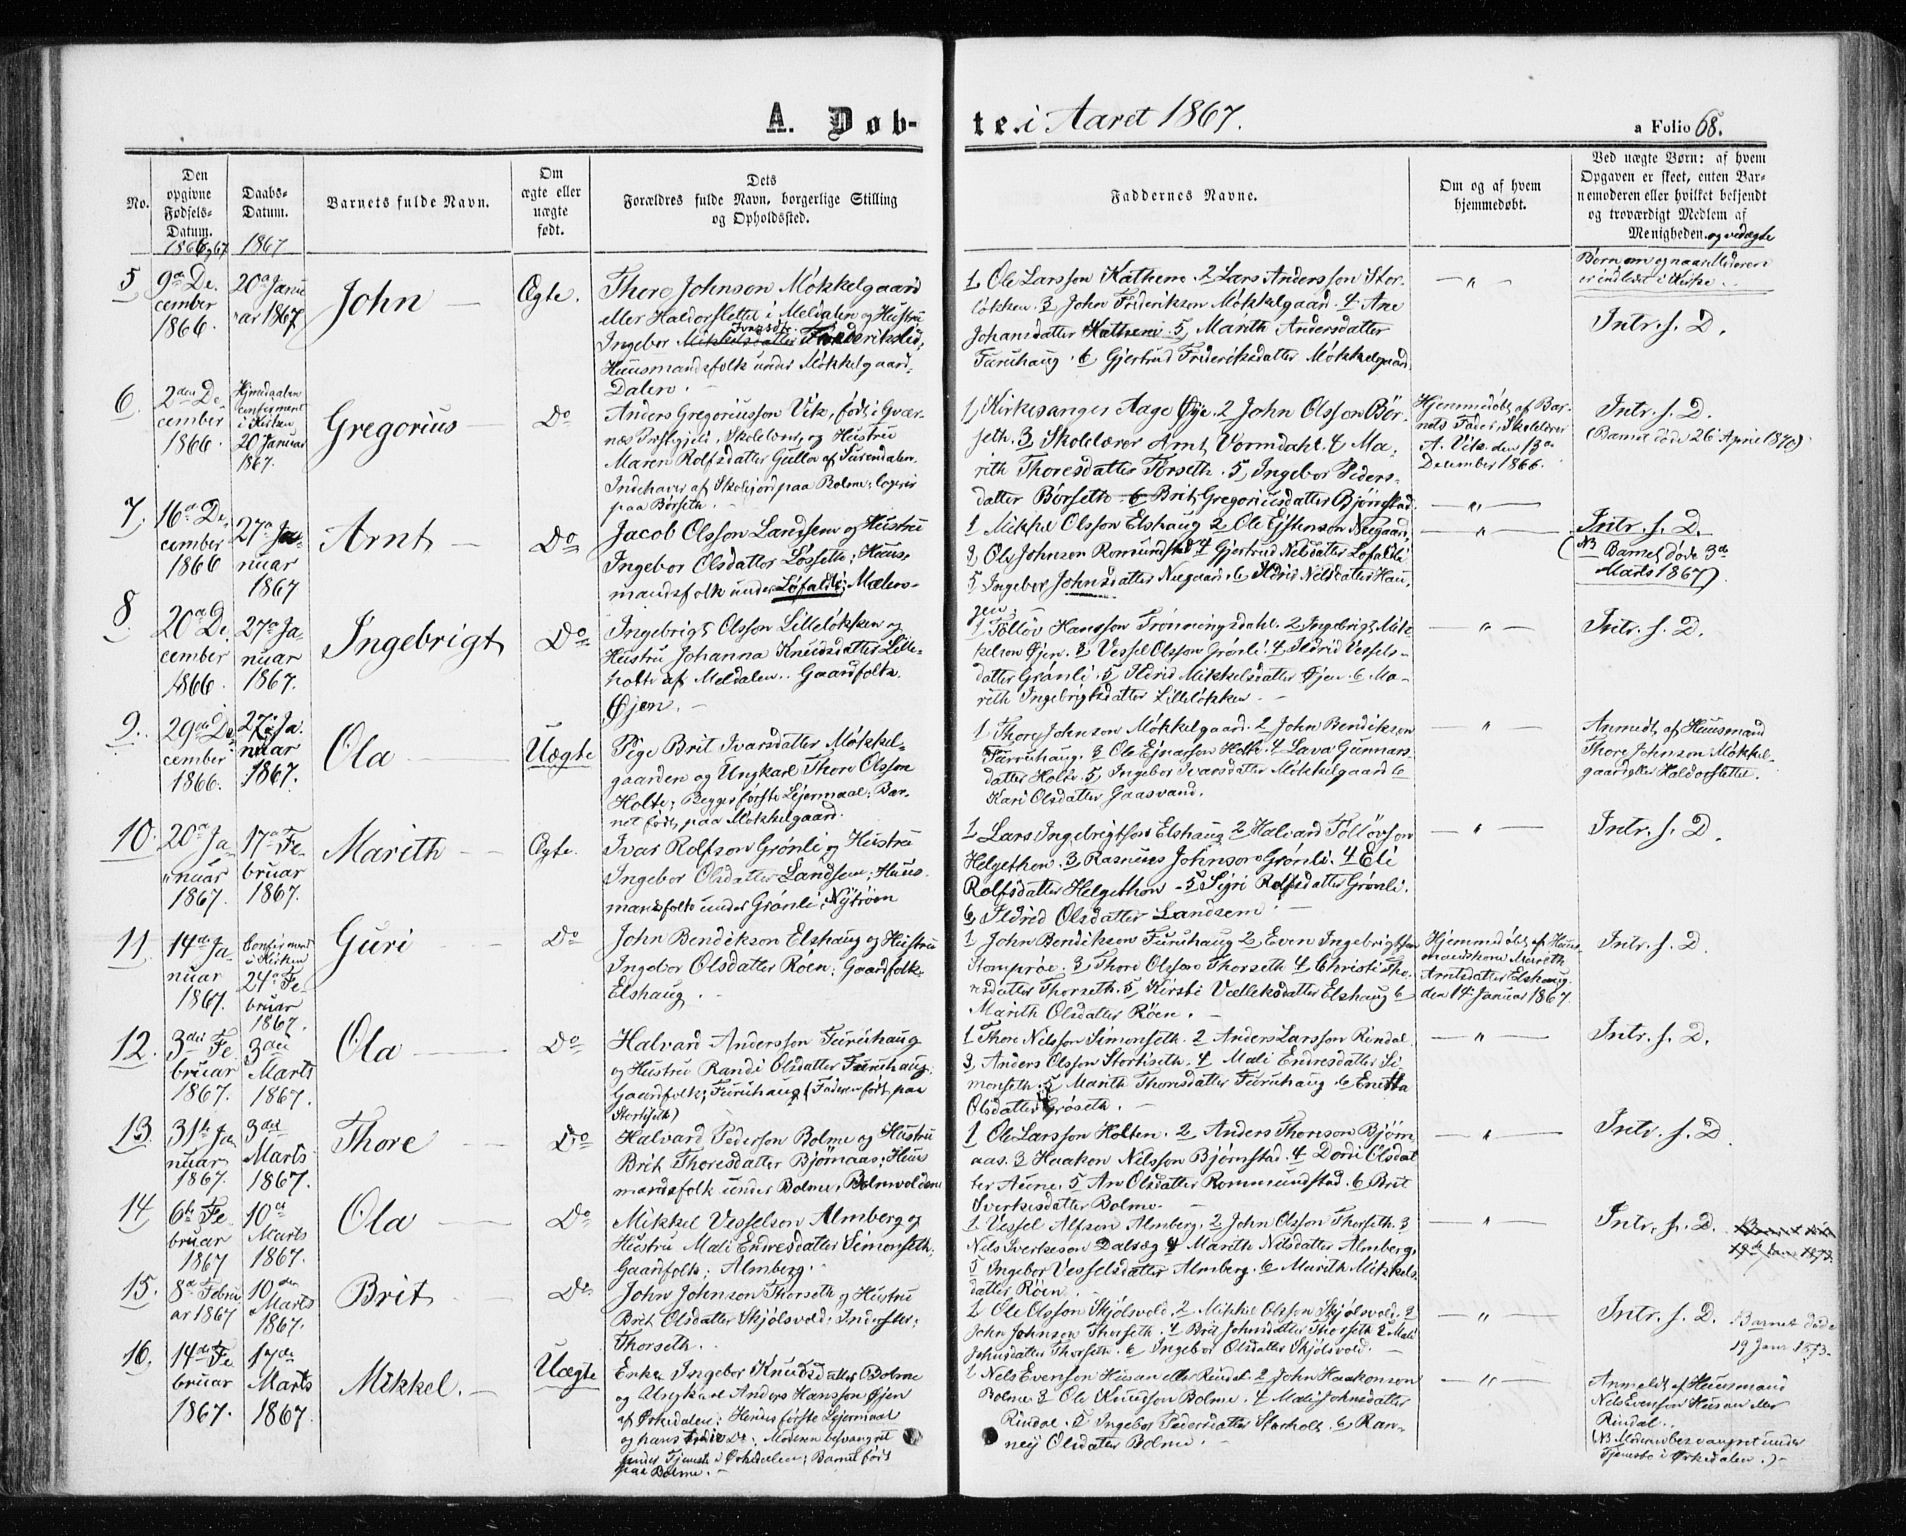 A. Døb-
te. i Aaret 1867.
a Folio 68.
No.
Den
opgivne
Fødsels-
Datum.
1866 og 67
Daabs-
Datum.
1867
Barnets fulde Navn.
Om
ægte eller
uægte
født.
Dets
Forældres fulde Navn, borgerlige Stilling
og Opholdssted.
Faddernes Navne.
Om og af hvem
hjemmedøbt.
Ved uægte Børn: af hvem
Opgaven er skeet, enten Bar-
nemoderen eller hvilket bekjendt
og troværdigt Medlem af
Menigheden. og ved ægte
Børn om og naar Moderen
er indledt i Kirke.
5
9a De-
cember
1866
20a Janu
ar 1867
John
Ægte.
Thore Johnson Møkkelgaard
eller Haldorslettet i Meldalen og Hustru
Ingebor Mikkelsdatter Ivarsdtr.
Huusmandsfolk under Møkkelgaard,
Dalen.
1 Ole Larsson 2 Lars Andersson Stor-
løkken 3 John Frideriksøn Møkkelgaard. 4 Ane
Johansdatter 5, Marith Andersdatter
Furuhaug. 6 Gjertrud Frideriksdatter Møkkelgaard
Intr. s. D.
6
2den De
cember
1866
Hjemdaaben
confirmert
i Kirken
20 Januar
1867.
Gregorius
Do
Anders Gregoriusson Vik, født i Qvær-
næs Præstgjeld, Skolelærer, og Hustru
Maren Rolfsdatter Gulla af Surendalen.
Indehaver af Skolejord paa Bolme; logerer
paa Børseth.
1, Kirkesanger Aage Øye. 2 John Olsson Bør-
seth. 3 Skolelærer Arnt Vormdahl. 4 Ma-
rith Thoresdatter Torseth. 5, Ingebor Peders-
datter Børseth 6 Brit Gregoriusdatter Bjørnstad.
Hjemmedøbt af Bar-
nets Fader, Skolelærer
A. Vik. den 13a
December 1866.
Intr. s. D.
(Barnet døde 26 April 1870)
7
16a De
cember
1866
27a Ja-
nuar
1867
Arnt
Do
Jacob Olsson Landsem og Hustru
Ingebor Olsdatter Løssette; Huus-
mandsfolk under Løfaldli;
1 Mikkel Olsson Elshaug 2 Ole Nergaard,
3 Ole Johnson Romundstad 4 Gjertrud Nilsdatter Løfaldli
5 Ingebor Johnsdatter Nergaard. 6 Ildrid Nilsdatter Hau-
gen
Intr. s. D.
(NB Barnet døde 3de
Marts 1867).
8
20a De
cember
1866.
27a Ja-
nuar
1867.
Ingebrigt
Do
Ingebrigt Olsson Lilleløkken og
Hustru Johanna Knudsdatter Lille-
holte af Meldalen. Gaardfolk.
Øjen.
1 Tølløv Hansson Trønningsdahl. 2 Ingebrigt Mik
kelson Øjen. 3 Vessel Olsson Grønli. 4 Ildrid Vessels-
datter Grønli. 5 Ildrid Mikkelsdatter Øjen. 6 Ma-
rith Ingebrigtsdatter Lilleløkken.
Intr. s. D.
9.
29de De
cember
1866.
27de Ja.
nuar
1867.
Ola
Uægte
Pige Brit Ivarsdatter Møkkel-
gaarden og Ungkarl Thore Olsson
Holte; Begges første Lejermaal; Bar-
net født paa Møkkelgaard.
1 Thore Johnson Møkkelgaard. 2 John Bendikson
Furruhaug. 3 Ole Ejnarson Holte. 4 Lava Gunnars-
datter Holte. 5, Ingebor Ivarsdatter Møkkelgaard 6
Kari Olsdatter Gaasvand.
Anmeldt af Huusmand
Thore Johnson Møkkel-
gaard eller Haldorslettet.
10.
20a Ja-
nuar
1867.
17a Fe-
bruar
1867.
Marith
Ægte.
Ivar Rolfson Grønli og Hustru
Ingebor Olsdatter Landsem; Huus-
mandsfolk under Grønli; Nyrøen
1 Lars Ingebrigtson Elshaug 2 Halvard Tølløvson
Helgethon. 3 Rasmus Johnson Grønli. 4 Eli
Rolfsdatter Helgethon - 5 Sigri Rolfsdatter Grønli.
6 Ildrid Olsdatter Landsem.
Intr. s. D.
11.
14de Ja-
nuar
1867.
Confirmert
i Kirken
24a Fe-
bruar
1867.
Guri
Do
John Bendikson Elshaug og Hustru
Ingebor Olsdatter Røen; Gaardfolk.
Elshaug.
1 John Bendikson Furuhaug 2 Even Ingebrigtson
Stomprøe. 3 Thore Olsson Thorseth 4 Christi Tho-
resdatter Thorseth. 5, Kirsti Vælleksdatter Elshaug 6
Marith Olsdatter Røen.
Hjemmedøbt af Huus-
mandskone Marith
Arntsdatter Elshaug.
den 14 Januar 1867.
Intr. s. D.
12.
3die Fe-
bruar
1867.
3die
Marts
1867.
Ola
Do
Halvard Andersson Furuhaug
og Hustru Randi Olsdatter Furuhaug.
Gaardfolk; Furuhaug (Faderen født paa
Stortiseth)
1 Thore Nilsson Simonseth. 2 Anders Larsson Rindal.
3, Anders Olsson Stortiseth. 4 Mali Endresdatter Si-
monseth. 5 Marith Thoresdatter Furuhaug 6
Olsdatter Grøseth.
Intr. s. D.
13.
31te Ja
nuar
1867.
3die
Marts
1867.
Thore
Do
Halvard Pederson Bolme og Hustru
Brit Thoresdatter Bjørnaas; Huus
mandsfolk under Bolme, Bolmvolden
1 Ole Larsson Holten. 2 Anders Thorson Bjørn
aas. 3 Haakon Nilsson Bjørnstad. 4 Dordi Olsdat
ter Aune. 5 An Olsdatter Rommundstad. 6 Brit
Sverkesdatter Bolme.
Intr. s. D.
14
6te Fe-
bruar
1867
10de
Marts
1867.
Ola
Do
Mikkel Vesselson Almberg og
Hustru Mali Endresdatter Simonseth;
Gaardfolk; Almberg.
1 Vessel Alfson Almberg. 2 John Olsson Thorseth. 3
Nils Sverkeson Dalsæg 4 Marith Nilsdatter Almberg,
5 Ingebor Vesselsdatter Almberg. 6 Marith Mikkels-
datter Røen.
Intr. s. D.
15.
8de Febru
ar 1867
10de
Marts
1867.
Brit
Do
John Johnson Thorseth og Hustru
Brit Olsdatter Skjølsvold; Inderster;
Thorseth.
1 Ole Olsson Skjølsvold. 2 Mikkel Olsson Skjølsvold. 3
John Johnson Thorseth. 4 Brit Johnsdatter Thorseth 5 Mali
Johnsdatter Thorseth. 6 Ingebor Olsdatter Skjølsvold.
Intr. s. D. Barnet døde
19 Janr 1873.
16.
14de Fe
bruar
1867.
17de
Marts
1867.
Mikkel.
Uægte
Enke Ingebor Knudsdatter Bolme
og Ungkarl Anders Hansson Øjen
af Ørkedalen; Hendes første Lejermaal
og hans tredie Do. Moderen besvangret
under Tjeneste i Ørkedalen; Barnet født
paa Bolme.
1 Nils Evenson Husan eller Rindal. 2 John Haakonson
Bolme 3 Ole Knudson Bolme. 4 Mali Johnsdatter
Rindal. 5 Ingebor Pedersdatter Storholt. 6 Ran-
ney Olsdatter Bolme.
Anmeldt af Huusmand
Nils Evenson Husan eller
Rindal.
(NB Moderen besvangret under
Tjeneste i Ørkedalen.)